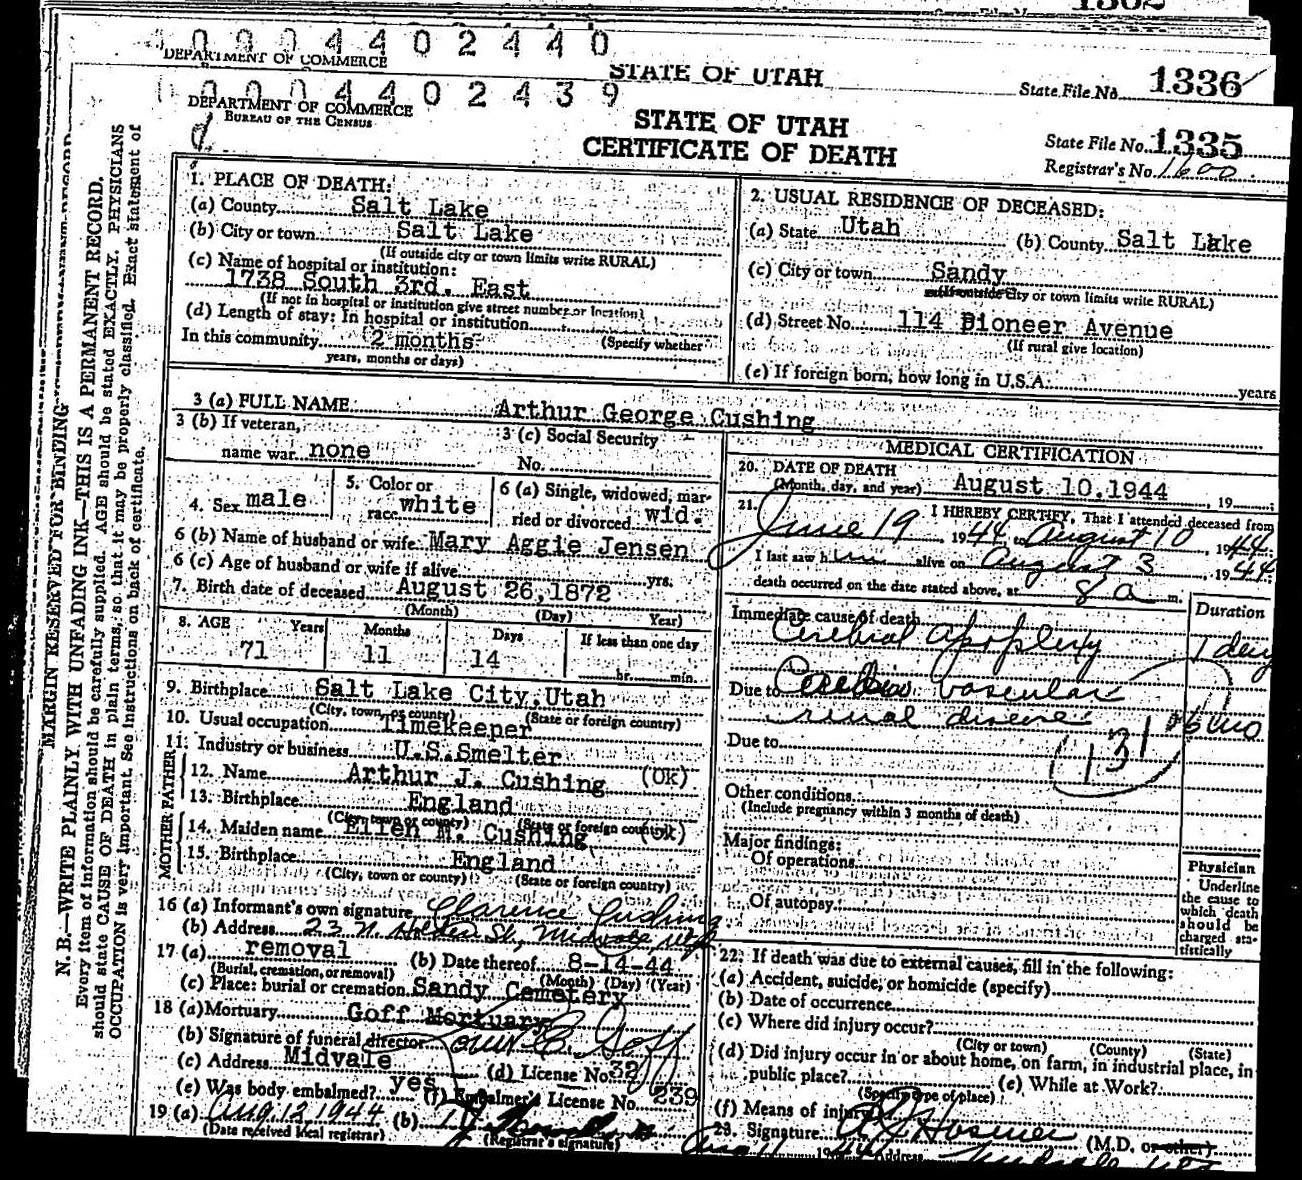 1302
0 0 0 4 4 0 2 4 4 0
DEPARTMENT OF COMMERCE
STATE OF UTAH
State File No. 1336
0 0 0 4 4 0 2 4 3 9
DEPARTMENT OF COMMERCE
BUREAU OF THE CENSUS
STATE OF UTAH
CERTIFICATE OF DEATH
State File No. 1335
Registrar's No. 1600
MARGIN RESERVED FOR BINDING
N. B.—WRITE PLAINLY WITH UNFADING INK—THIS IS A PERMANENT RECORD.
Every item of information should be carefully supplied. AGE should be stated EXACTLY. PHYSICIANS
should state CAUSE OF DEATH in plain terms, so that it may be properly classified. Exact statement of
OCCUPATION is very important. See instructions on back of certificate.
1. PLACE OF DEATH:
(a) County Salt Lake
(b) City or town Salt Lake
(If outside city or town limits write RURAL)
(c) Name of hospital or institution:
1738 South 3rd. East
(If not in hospital or institution give street number or location)
(d) Length of stay: In hospital or institution
(Specify whether
In this community 2 months
years, months or days)
2. USUAL RESIDENCE OF DECEASED:
(a) State Utah (b) County Salt Lake
(c) City or town Sandy
(If outside city or town limits write RURAL)
(d) Street No. 114 Pioneer Avenue
(If rural give location)
(e) If foreign born, how long in U.S.A. years
3 (a) FULL NAME Arthur George Cushing
3 (b) If veteran,
name war none
3 (c) Social Security
No.
4. Sex male
5. Color or
race white
6 (a) Single, widowed, mar-
ried or divorced wid.
6 (b) Name of husband or wife Mary Aggie Jensen
6 (c) Age of husband or wife if alive yrs.
7. Birth date of deceased August 26, 1872
(Month) (Day) Year)
8. AGE Years Months Days If less than one day
71 11 14 hr. min.
9. Birthplace Salt Lake City, Utah
(City, town, or county) (State or foreign country)
10. Usual occupation Timekeeper
11. Industry or business U.S.Smelter
FATHER
12. Name Arthur J. Cushing (Ok)
13. Birthplace England
(City, town or county) (State or foreign country)
MOTHER
14. Maiden name Ellen M. Cushing (Ok)
15. Birthplace England
(City, town or county) (State or foreign country)
16 (a) Informant's own signature Clarence Cushing
(b) Address 23 N. Holden St., Midvale
17 (a) removal (b) Date thereof 8-14-44
(Burial, cremation, or removal) (Month) (Day) (Year)
(c) Place: burial or cremation Sandy Cemetery
18 (a) Mortuary Goff Mortuary
(b) Signature of funeral director Goff
(c) Address Midvale (d) License No. 32
(e) Was body embalmed? yes (f) Embalmer's License No. 239
19 (a) Aug. 12, 1944 (b)
(Date received local registrar) (Registrar's signature)
MEDICAL CERTIFICATION
20. DATE OF DEATH
(Month, day, and year) August 10, 1944, 19
21. I HEREBY CERTIFY, That I attended deceased from
June 19, 1944 to August 10, 1944
I last saw him alive on August 3 1944
death occurred on the date stated above, at 8 a m.
Immediate cause of death Duration
Cerebral apoplexy 1 day
Due to vascular
renal disease
131
Due to
Other conditions
(Include pregnancy within 3 months of death)
Major findings:
Of operations
Of autopsy
Physician
Underline
the cause to
which death
should be
charged sta-
tistically
22. If death was due to external causes, fill in the following:
(a) Accident, suicide, or homicide (specify)
(b) Date of occurrence
(c) Where did injury occur?
(City or town) (County) (State)
(d) Did injury occur in or about home, on farm, in industrial place, in
public place? (e) While at Work?
(Specify type of place)
(f) Means of injury
23. Signature Hosmer (M.D. or other)
Aug 11 1944 Address